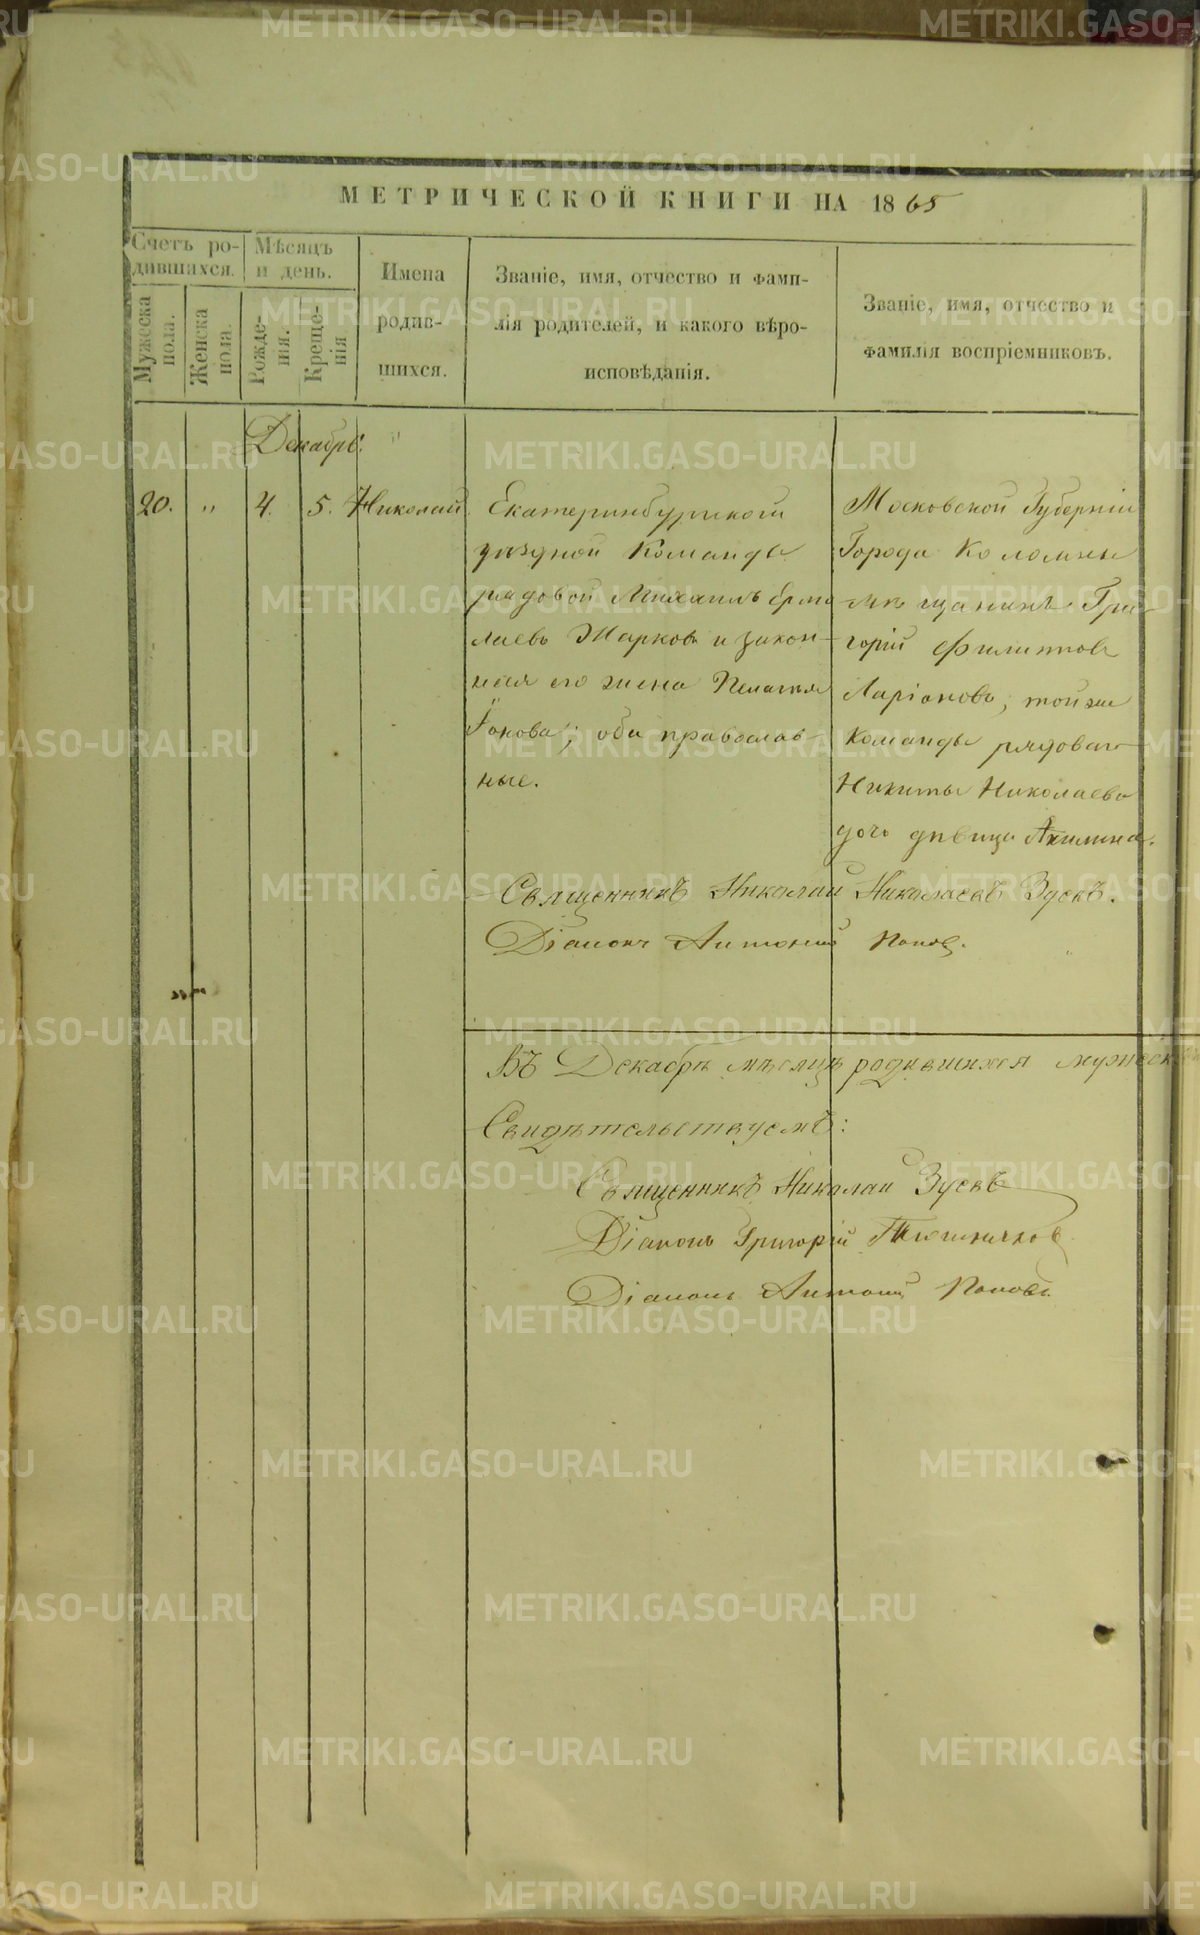 МЕТРИЧЕСКОЙ КНИГИ НА 1865
Счетъ ро-
дившихся.
Мужеска
пола.
Женска
пола.
Мѣсяцъ
и день.
Рожде-
нія.
Креще-
нія
Имена
родив-
шихся.
Званіе, имя, отчество и фами-
лія родителей, и какого вѣро-
исповѣданія.
Званіе, имя, отчество и
фамилія воспріемниковъ.
Декабрь.
20. „ 4. 5. Николай.
Екатеринбургской
уѣздной Команды
рядовой Михаилъ Ермо
лаевъ Жарковъ и закон-
ная его жена Пелагия
Іонова; оба православ-
ные.
Московской Губерніи
Города Коломны
мѣщанинъ Гри-
горій Филиппов
Ларіоновъ; той же
Команды рядоваго
Никиты Николаева
дочь дѣвица Акилина.
Священникъ Николай Николаевъ Зуевъ.
Діаконъ Антоній Попов.
Въ Декабрѣ мѣсяцѣ родившихся мужеск
Свидѣтельствуемъ:
Священникъ Николай Зуевъ
Діаконъ Григорій
Діаконъ Антоній Поповъ.
METRIKI.GASO-URAL.RU